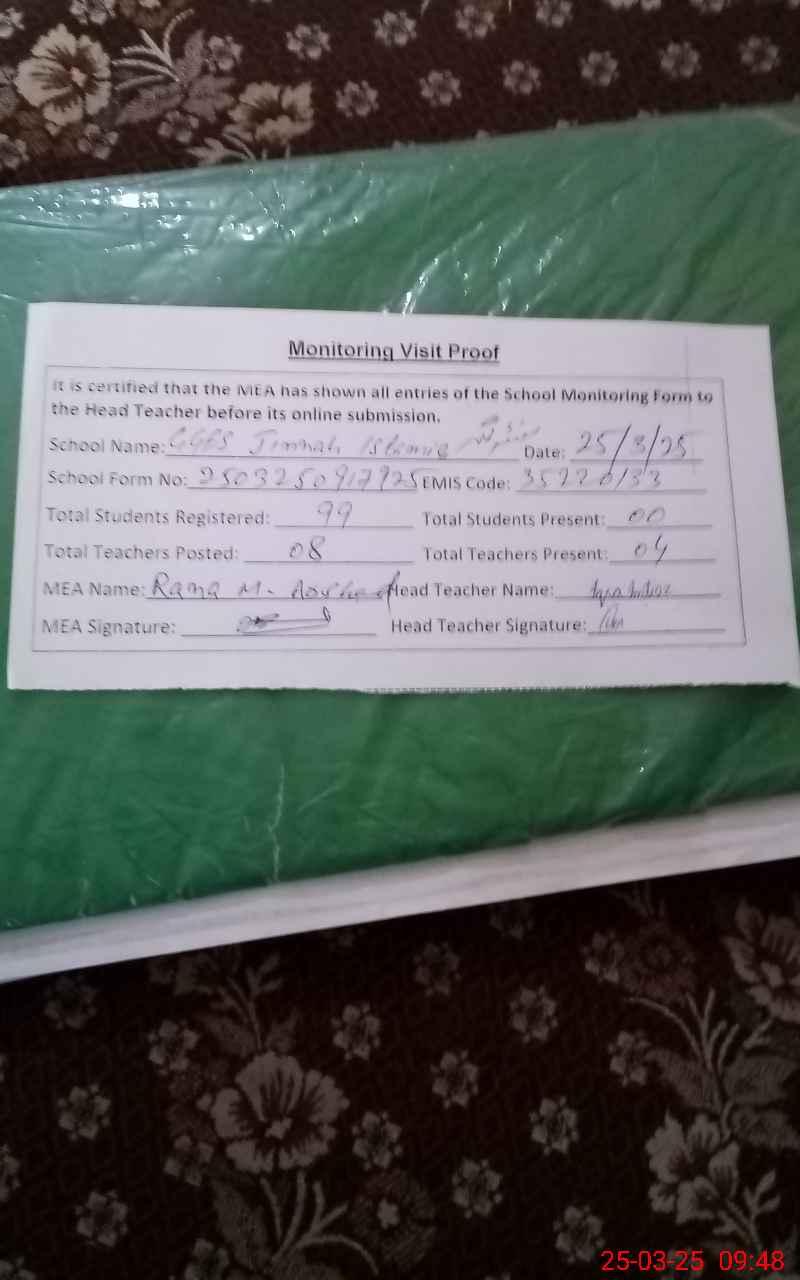 Monitoring Visit Proof
It is certified that the MEA has shown all entries of the School Monitoring Form to
the Head Teacher before its online submission.
School Name: GGES Jinnah Islamia Date: 25/3/25
School Form No: 2503250917925 EMIS Code: 35220133
Total Students Registered: 99 Total Students Present: 00
Total Teachers Posted: 08 Total Teachers Present: 04
MEA Name: Rana M. Arshad Head Teacher Name: Iqra
MEA Signature: Head Teacher Signature:
25-03-25 09:48